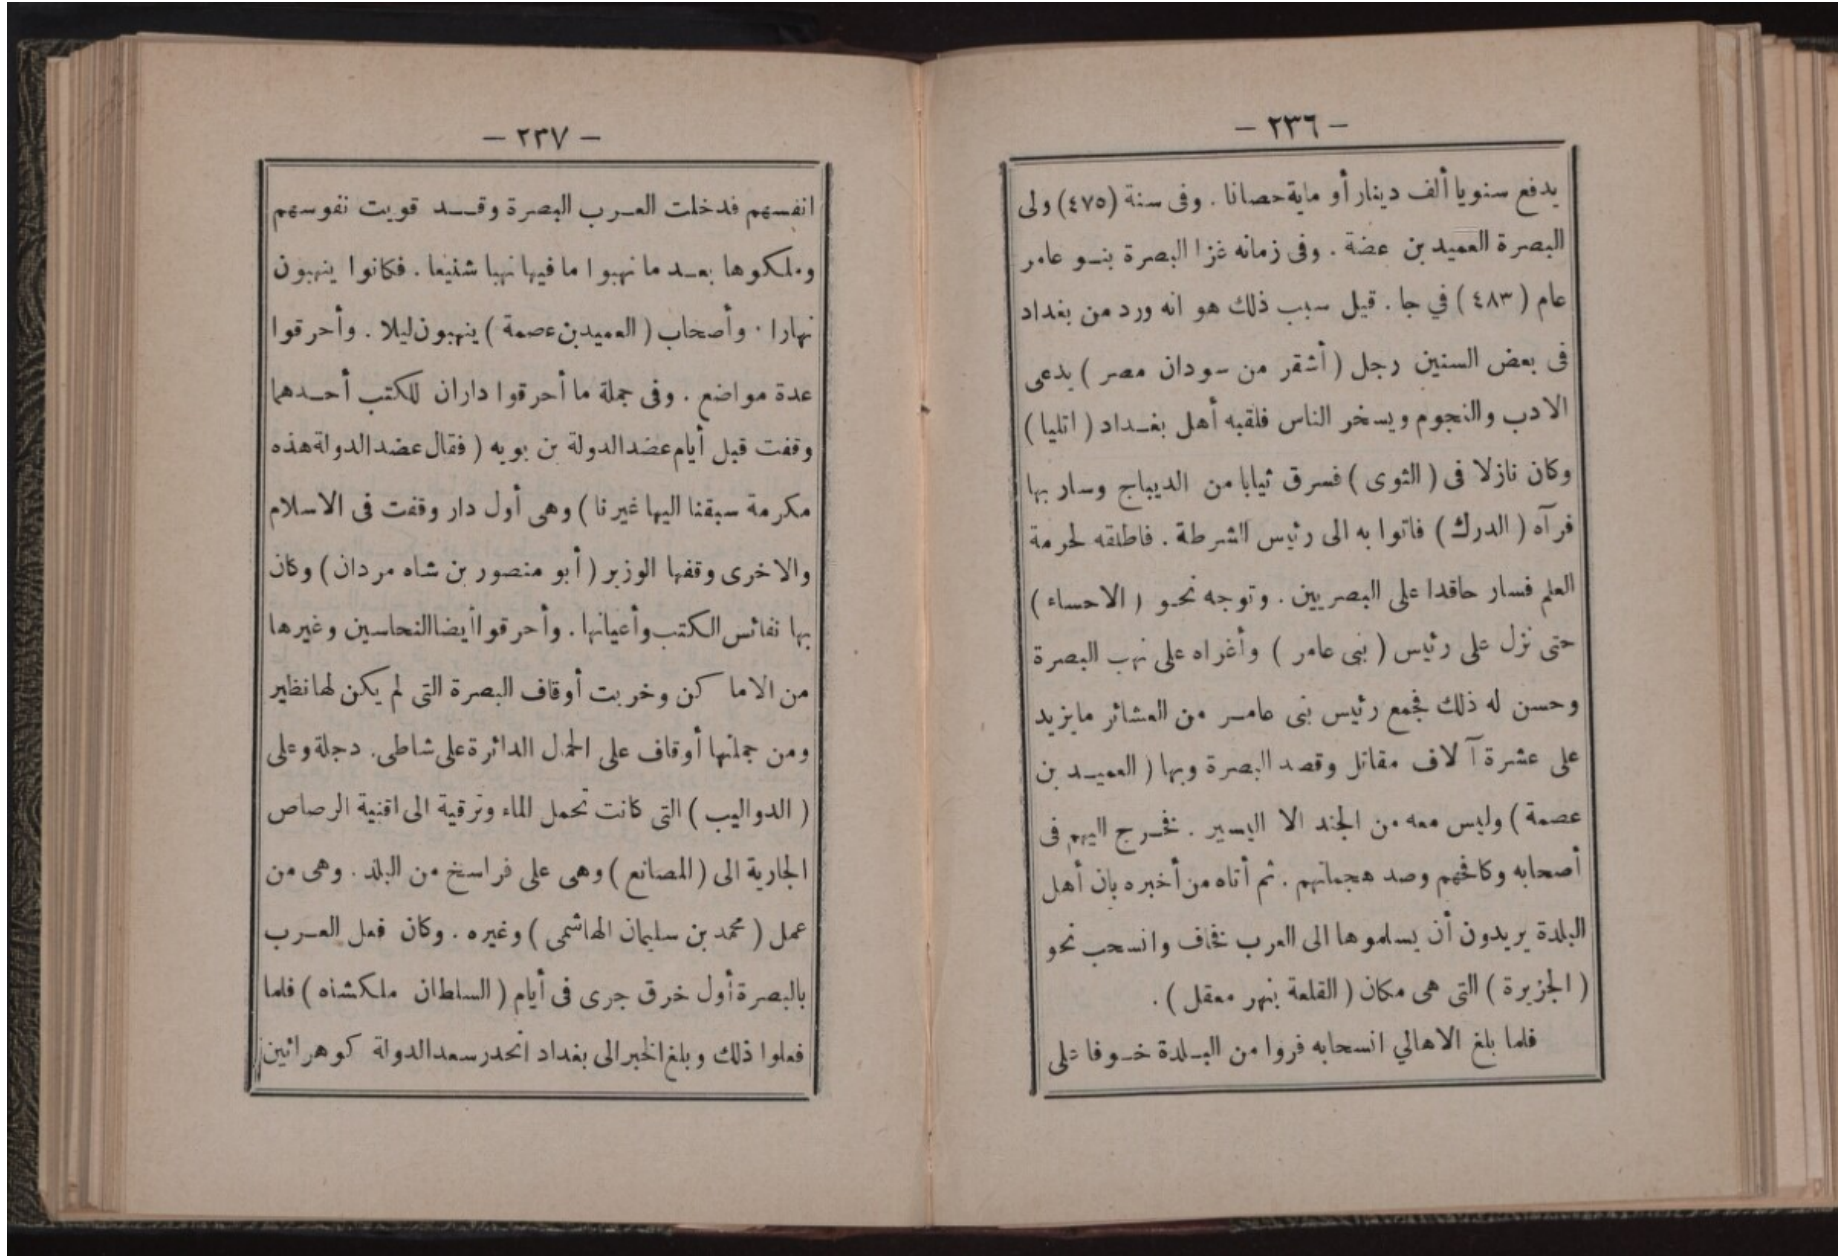 — ٢٣٦ —
يدفع سنويا ألف دينار أو ماية حصانا . وفى سنة (٤٧٥) ولى
البصرة العميد بن عضة . وفى زمانه غزا البصرة بنو عامر
عام (٤٨٣) في جا . قيل سبب ذلك هو انه ورد من بغداد
فى بعض السنين رجل (أشقر من سودان مصر) يدعى
الادب والنجوم ويسخر الناس فلقبه أهل بغداد (اتليا)
وكان نازلا فى (الثوى) فسرق ثيابا من الديباج وسار بها
فرآه (الدرك) فاتوا به الى رئيس الشرطة . فاطلقه لحرمة
العلم فسار حاقدا على البصريين . وتوجه نحو (الاحساء)
حتى نزل على رئيس (بنى عامر) وأغراه على نهب البصرة
وحسن له ذلك فجمع رئيس بنى عامر من العشائر مايزيد
على عشرة آلاف مقاتل وقصد البصرة وبها (العميد بن
عصمة) وليس معه من الجند الا اليسير . فخرج اليهم فى
أصحابه وكافحهم وصد هجماتهم . ثم أتاه من أخبره بان أهل
البلدة يريدون أن يسلموها الى العرب فخاف وانسحب نحو
(الجزيرة) التى هى مكان (القلعة بنهر معقل) .
فلما بلغ الاهالي انسحابه فروا من البلدة خوفا على
— ٢٣٧ —
انفسهم فدخلت العرب البصرة وقد قويت نفوسهم
وملكوها بعد ما نهبوا ما فيها نهبا شنيعا . فكانوا ينهبون
نهارا . وأصحاب (العميد بن عصمة) ينهبون ليلا . وأحرقوا
عدة مواضع . وفى جملة ما أحرقوا داران للكتب أحدهما
وقفت قبل أيام عضد الدولة بن بويه (فقال عضد الدولة هذه
مكرمة سبقنا اليها غيرنا) وهى أول دار وقفت فى الاسلام
والاخرى وقفها الوزير (أبو منصور بن شاه مردان) وكان
بها نفائس الكتب وأعيانها . وأحرقوا أيضا النحاسين وغيرها
من الاماكن وخربت أوقاف البصرة التى لم يكن لها نظير
ومن جملتها أوقاف على الحمل الدائرة على شاطى. دجلة وعلى
(الدواليب) التى كانت تحمل الماء وترقية الى اقنية الرصاص
الجارية الى (المصانع) وهى على فراسخ من البلد . وهى من
عمل (محمد بن سليمان الهاشمى) وغيره . وكان فعل العرب
بالبصرة أول خرق جرى فى أيام (السلطان ملكشاه) فلما
فعلوا ذلك وبلغ الخبر الى بغداد انحدر سعد الدولة كوهرائين